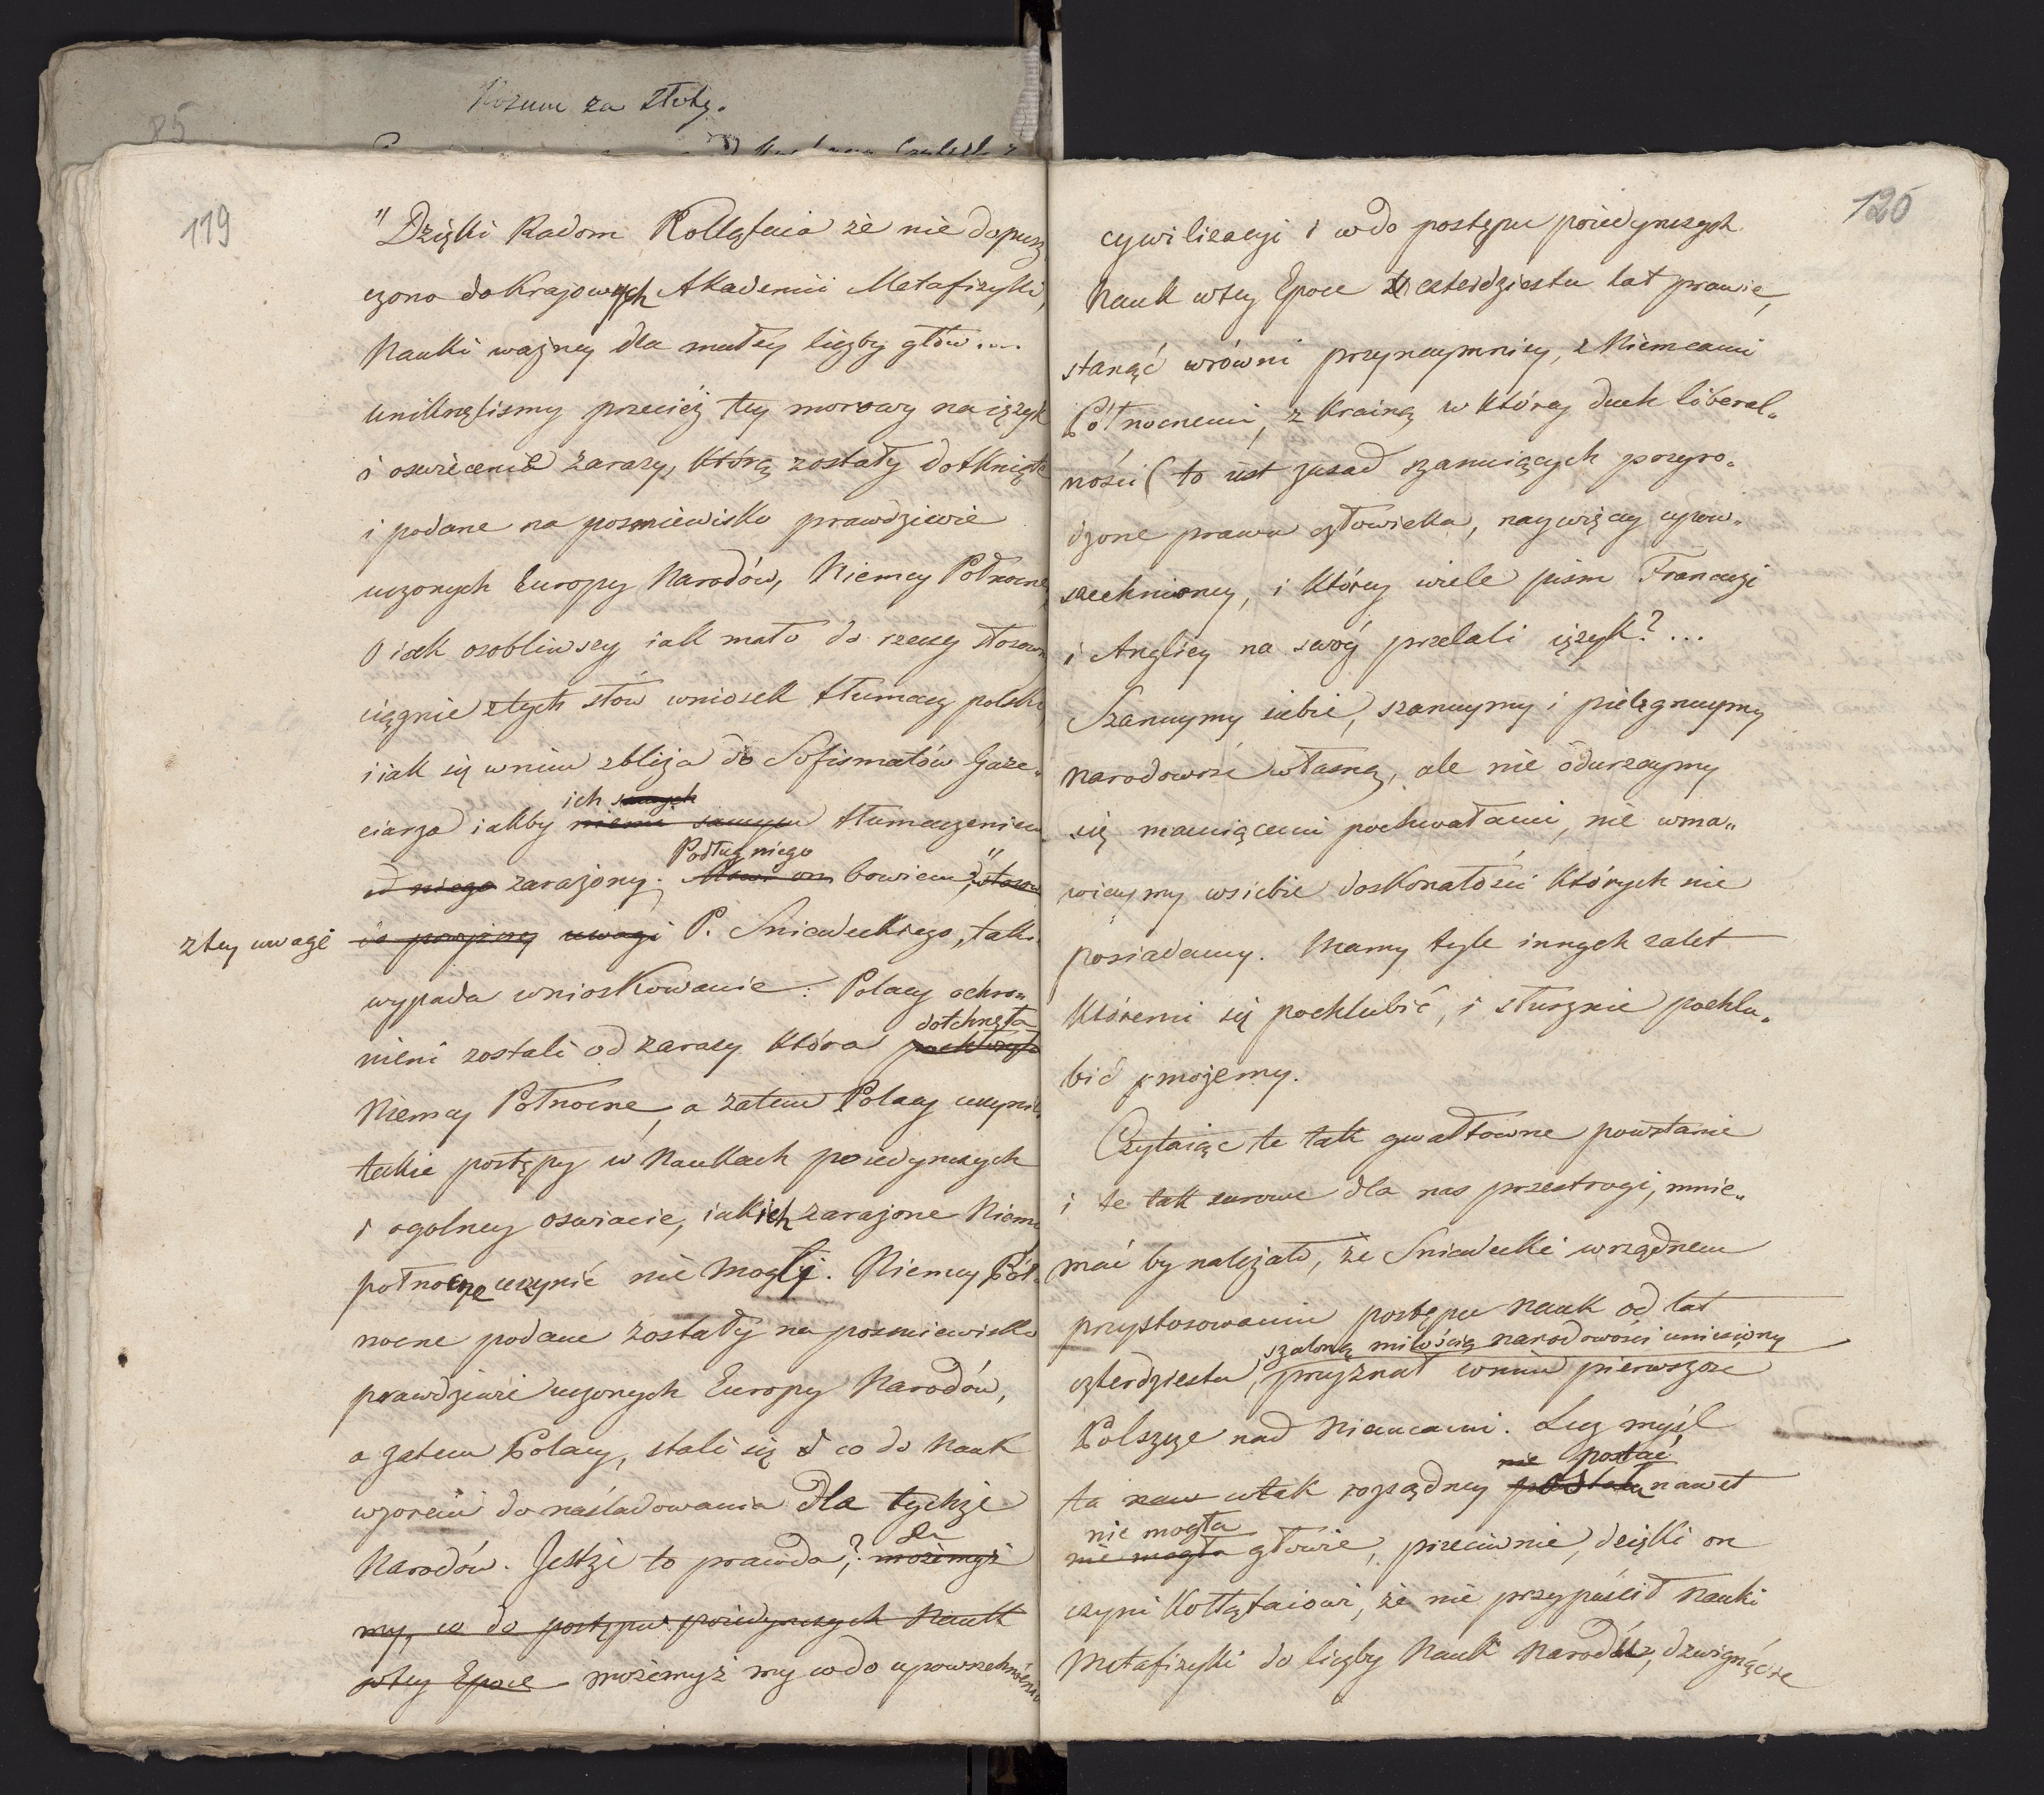 85
Rozum za
119
"Dzięki Radom Kołłątaia że nie dopusz
czono do Krajowych Akademii Metafizyki,
Nauki ważney dla małey liczby głów....
uniknęlismy przecież tey morowy na ięzyk
i oswiecenie zarazy, którą zostały dotknięte
i podane na posmiewisko prawdziwie
uczonych Europy Narodów, Niemcy Połnocne,
O iak osobliwszy iak mało do rzeczy stosown
ciągnie ztych słów wniosek tłumacz polski
i iak się wnim zbliża do Sofismatów Gaze„
ich samych
ciarza iakby niemi samym tłumaczeniem
Podług niego
od niego zarażony. Mowi on bowiem „
ztey uwagi
do powyższey uwagi P. Sniadeckiego, taki
wypada wnioskowanie: Polacy ochron„
dotchnęła
nieni zostali od zarazy która
Niemcy Połnocne, a zatem Polacy uczynili
takie postępy w Naukach poiedynczych
i ogolney oswiacie, iakich zarażone Niemcy
połnocne uczynić nie mogły. Niemcy Pół„
nocne podane zostały na posmiewisko
prawdziwie uczonych Europy Narodów,
a zatem Polacy, stali się co do Nauk
wzorem do naśladowania dla tychże
Narodów. Jestże to prawda? możemyż
my, co do postępu poiedynczych Nauk
wtey Epoce możemyż my codo upowszechnienia
120
cywilizacyi i codo postępu poiedynczych
Nauk wtey Epoce czterdziestu lat prawie,
stanąć wrówni przynaymniey, z Niemcami
Północnemi, z krainą w którey duch liberal„
ności (to iest zasad szanuiących przyro„
dzone prawa człowieka, naywięcey upow„
szechniony, i którey wiele pism Francuzi
i Anglicy na swóy przelali ięzyk?...
Szanuymy siebie, szanuymy i pielęgnuymy
narodowość własną, ale nie odurzaymy
się mamiącemi pochwałami, nie wma„
wiaymy wsiebie doskonałości których nie
posiadamy. Mamy tyle innych zalet
któremi się pochlubić, i słusznie pochlu„
bić możemy.
Czytaiąc te tak gwałtowne powstanie
i te tak surowe dla nas przestrogi, mnie„
mać by należało, że Sniadecki wrzędnem
przystosowaniu postępu nauk od lat
szaloną miłością narodowości uniesiony
czterdziestu, przyznał wnim pierwszose
Polszcze nad Niemcami. Lecz myśl
nie postać
ta naw wtak rozsądney postała nawet
nie mogła
nie mogła głowie, przeciwnie, dzięki on
czyni Kołłątaiowi, że nie przypuścił nauki
Metafizyki do liczby Nauk Narodu, dzwignące